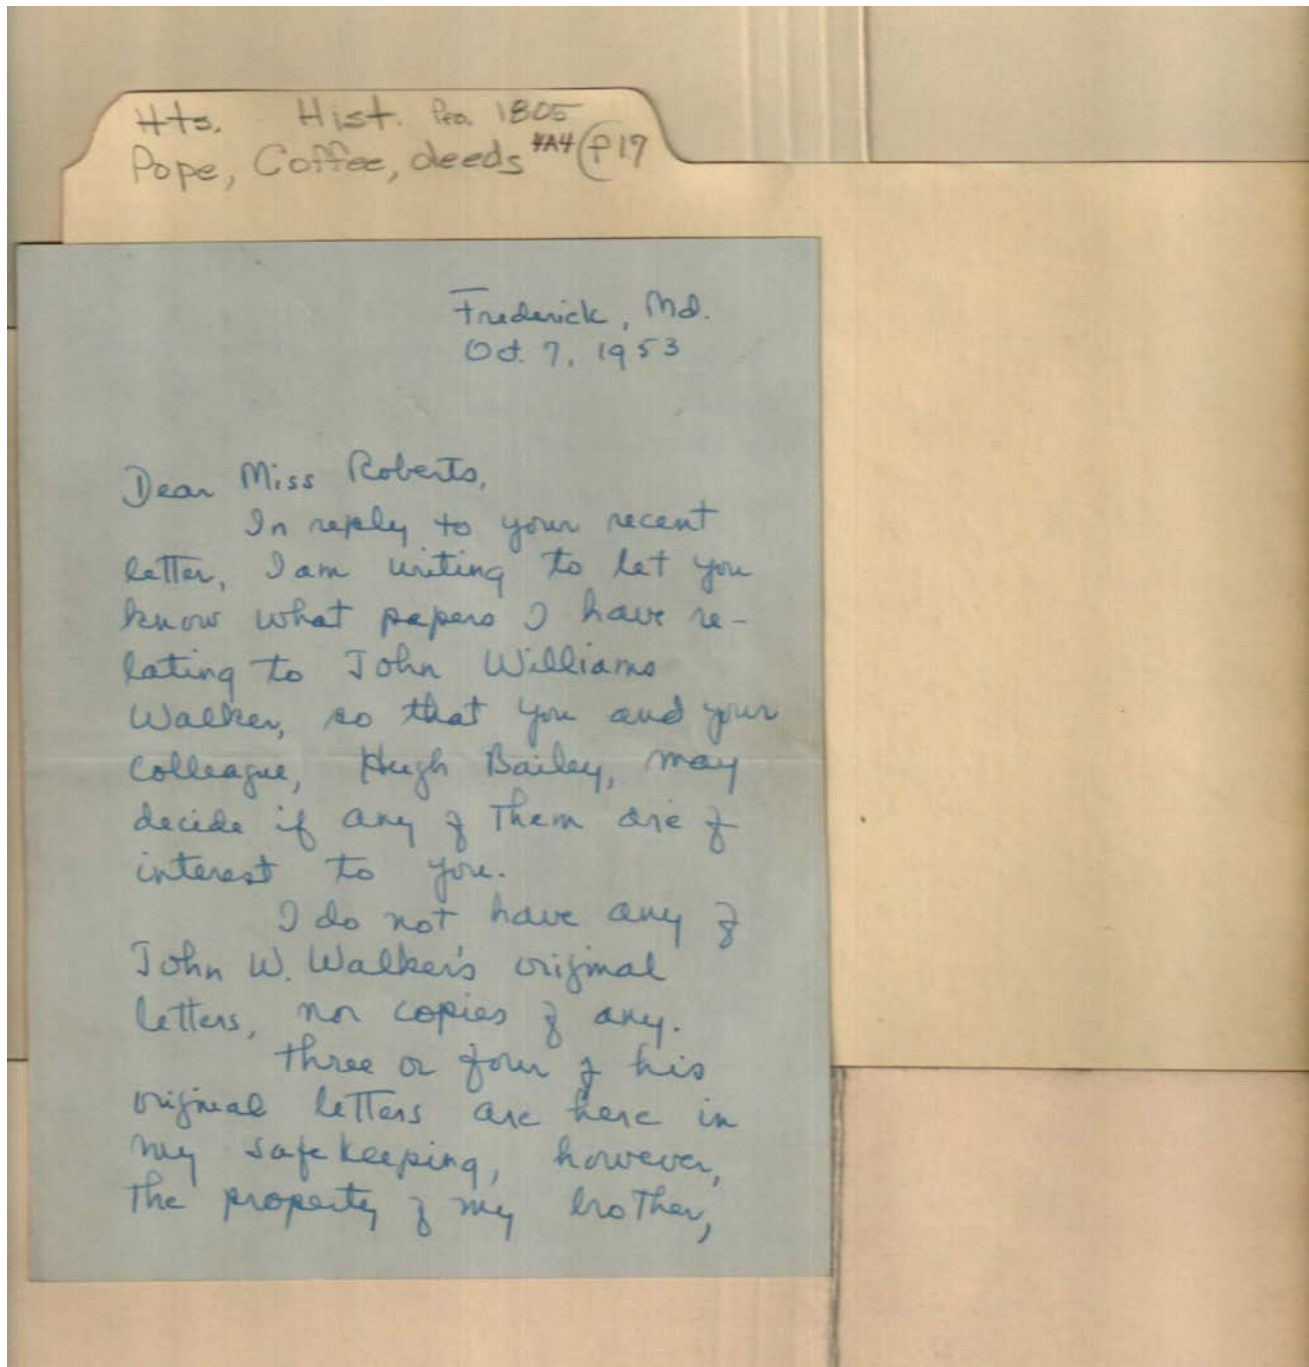 Hts. Hist. Pea. 1805
Pope, Coffee, deeds #A4 P17
Frederick, Md.
Oct. 7, 1953
Dear Miss Roberts,
In reply to your recent
letter, I am writing to let you
know what papers I have re-
lating to John Williams
Walker, so that you and your
colleague, Hugh Bailey, may
decide if any of them are of
interest to you.
I do not have any of
John W. Walker's original
letters, nor copies of any.
Three or four of his
original letters are here in
my safekeeping, however,
the property of my brother,